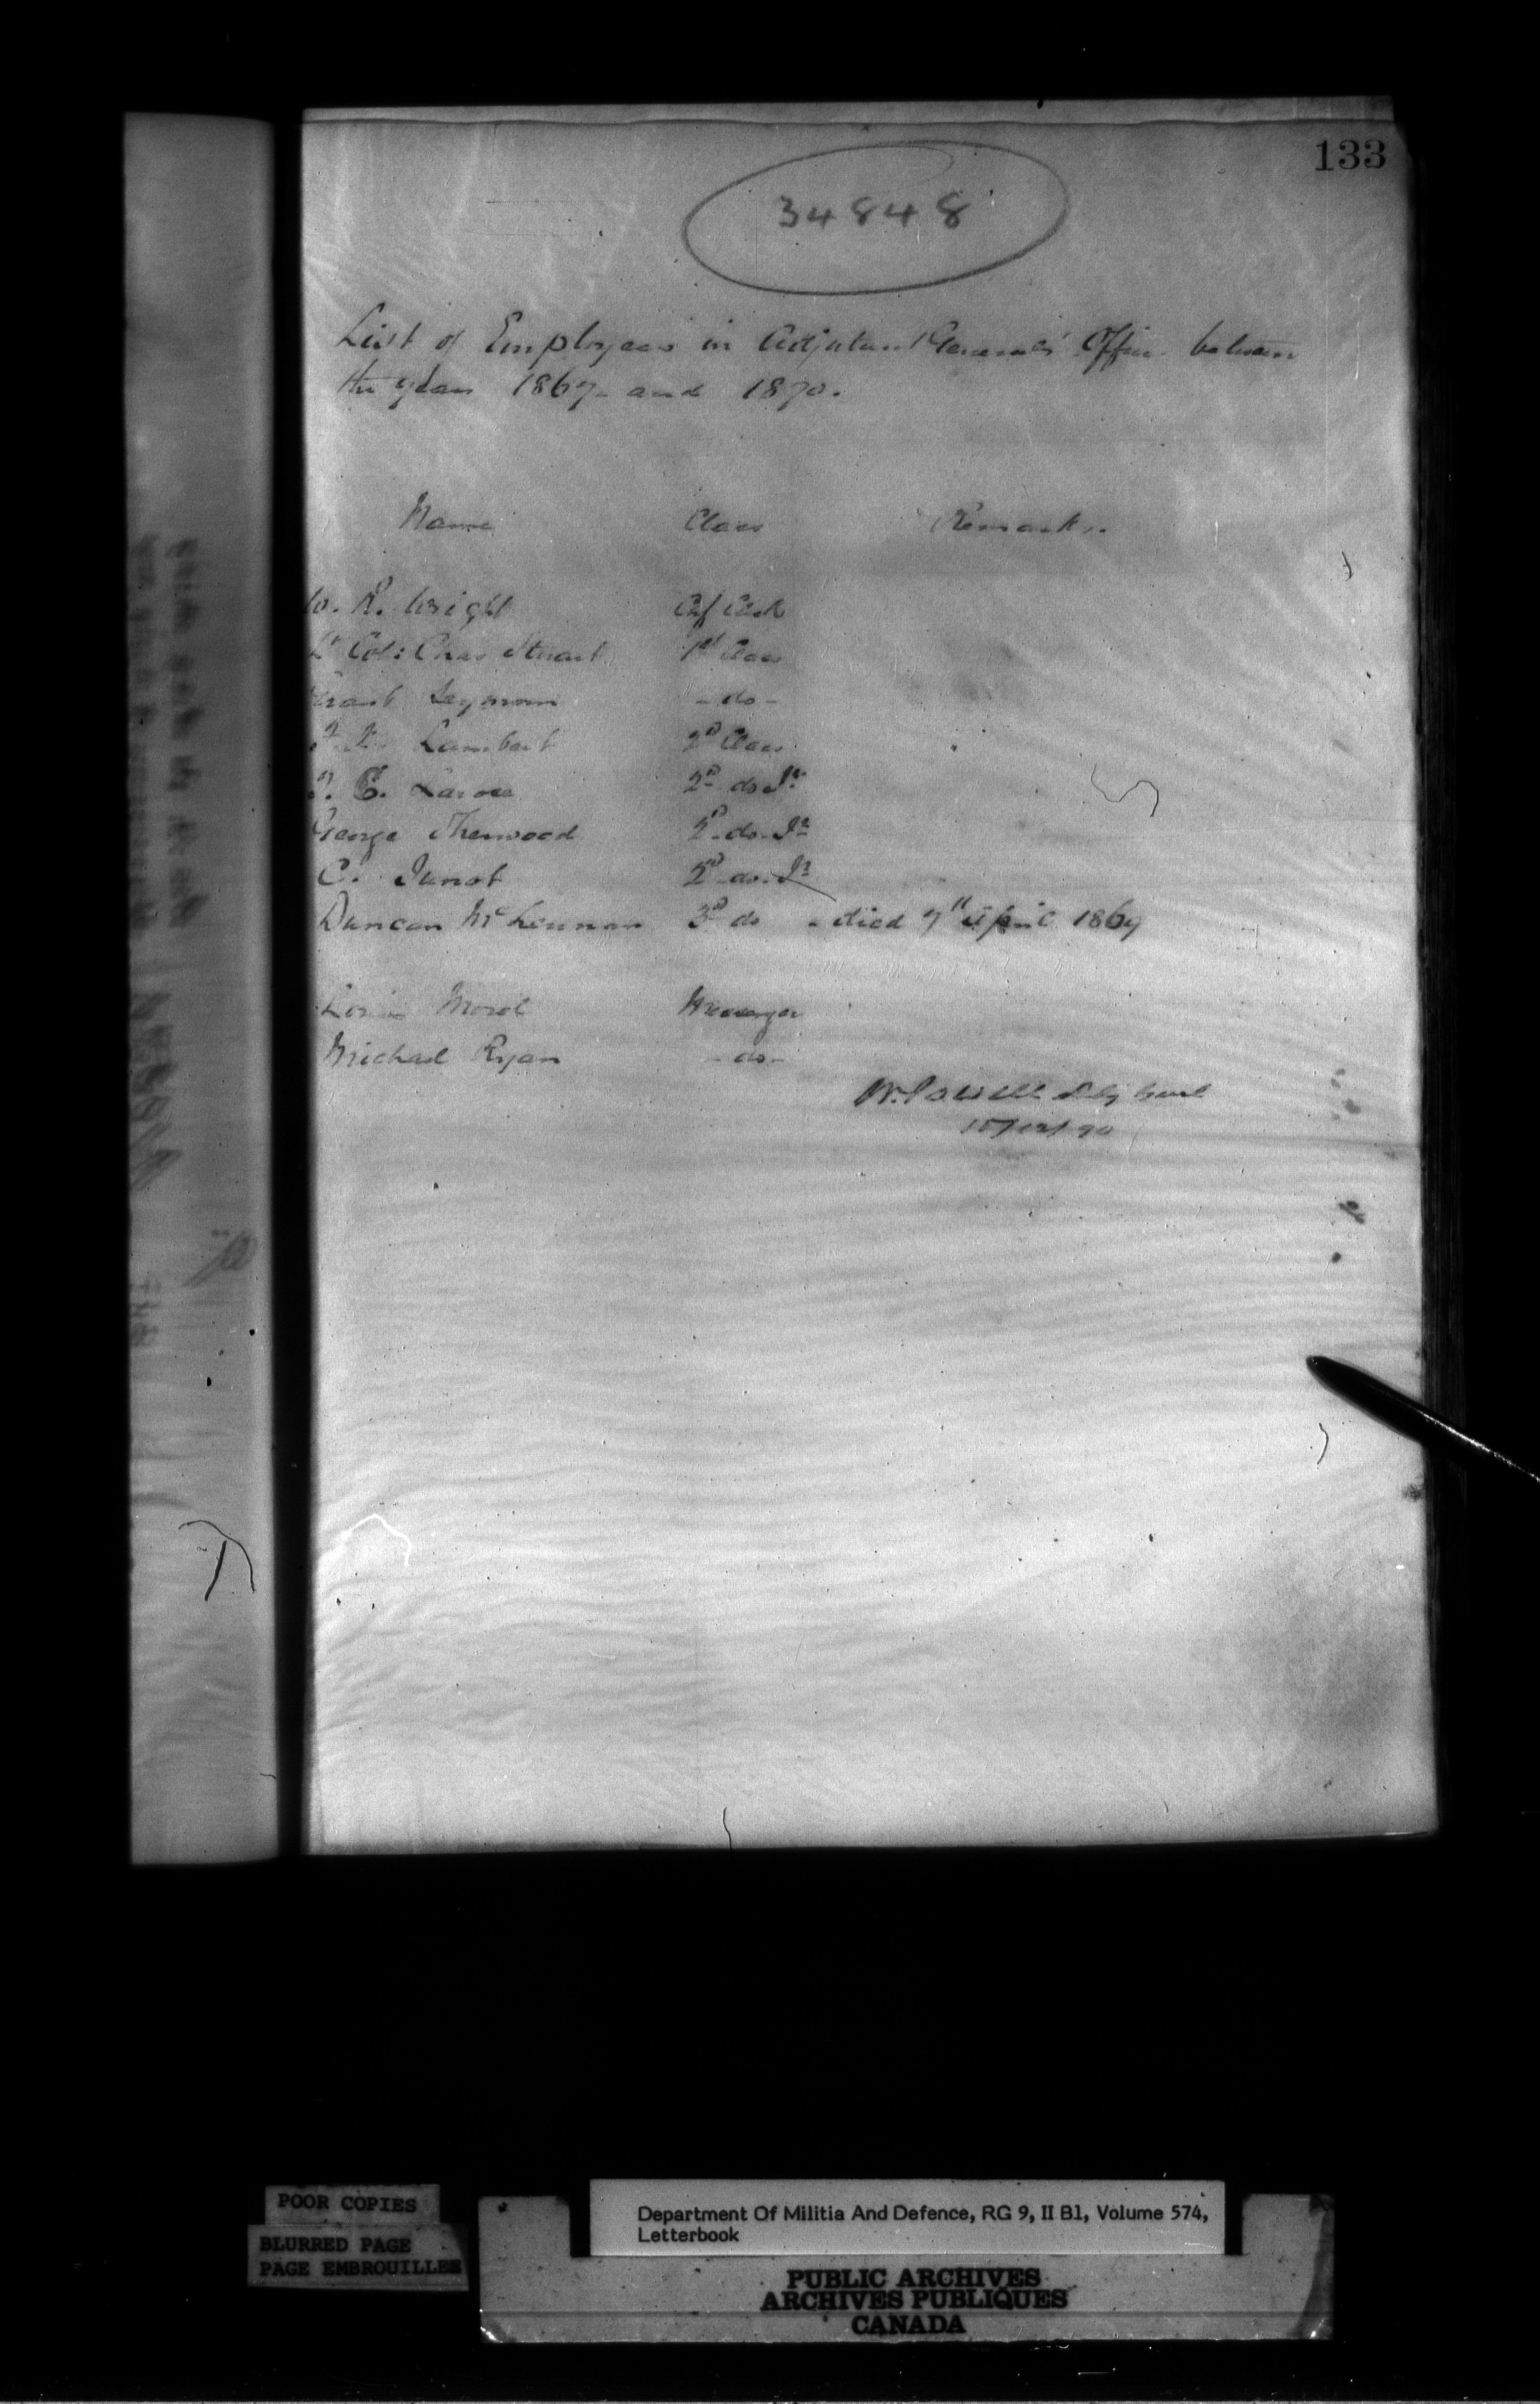 133
34848
List of Employees in Adjutant Generals' Office between
the years 1867 and 1870.
Name Class Remarks.
W. R. Wright Chf Clerk
Lt Col: Chas Stuart 1st Class
Grant Seymour - do -
Lambert 2d Class
E. Larose 2d do Jr
George Sherwood 2d - do - Jr
C. Junot 2d do. Jr
Duncan McLennan 3d do - died 7th April 1869
Morel Messenger
Michael Ryan - do -
W. Powell
POOR COPIES
BLURRED PAGE
PAGE EMBROUILLEE
Department Of Militia And Defence, RG 9, II B1, Volume 574,
Letterbook
PUBLIC ARCHIVES
ARCHIVES PUBLIQUES
CANADA